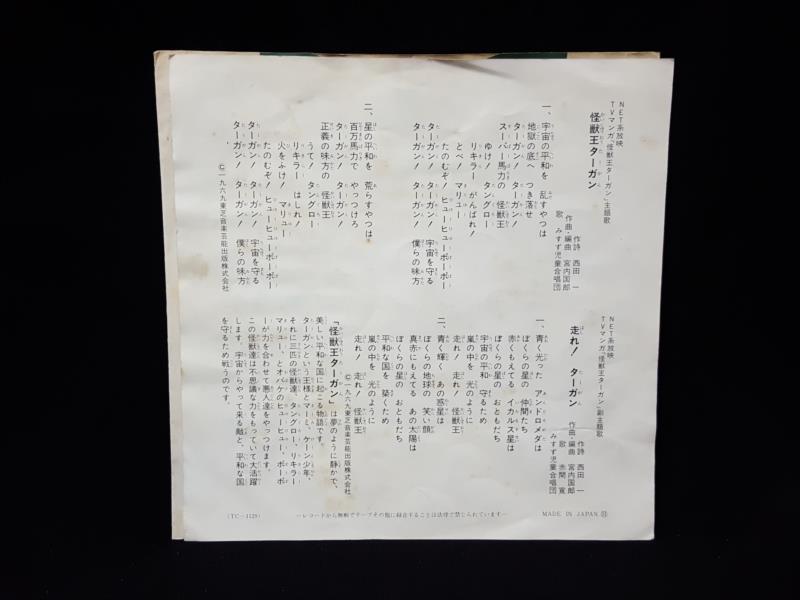 NET系放映
TVマンガ「怪獣王ターガン」主題歌
怪獣王ターガン
作詩 西田 一
作曲・編曲 宮内国郎
歌 みすず児童合唱団
一、宇宙の平和を 乱すやつは
地獄の底へ つき落せ
ターガン! ターガン!
スーパー馬力の 怪獣王
ゆけ! タングロー
リキラー がんばれ!
とべ! マリュー
たのむぞ! ヒューヒューポーポー
ターガン! ターガン! 宇宙を守る
ターガン! ターガン! 僕らの味方
二、星の平和を 荒らすやつは
百万馬力で やっつけろ
ターガン! ターガン!
正義の味方の 怪獣王
うて! タングロー
リキラー はしれ!
火をふけ! マリュー
たのむぞ! ヒューヒューポーポー
ターガン! ターガン! 宇宙を守る
ターガン! ターガン! 僕らの味方
©一九六九東芝音楽芸能出版株式会社
NET系放映
TVマンガ「怪獣王ターガン」副主題歌
走れ! ターガン
作詩 西田 一
作曲・編曲 宮内国郎
歌 水間 寛
みすず児童合唱団
一、青く光った アンドロメダは
ぼくらの星の 仲間たち
赤くもえてる イカルス星は
ぼくらの星の おともだち
宇宙の平和 守るため
嵐の中を 光のように
走れ! 走れ! 怪獣王
二、青く輝く あの惑星は
ぼくらの地球の 笑い顔
真赤にもえてる あの太陽は
ぼくらの星の おともだち
平和な国を 築くため
嵐の中を 光のように
走れ! 走れ! 怪獣王
©一九六九東芝音楽芸能出版株式会社
「怪獣王ターガン」は夢のように静かで、
美しい平和な国に起こる物語です。
ターガンという王様とマーミ、ケーン少年、
それに三匹の怪獣達、タングロー、リキラー
マリュー、とオバケのヒューヒュー、ポーポ
ーが力を合わせて悪人達をやっつけます。
この怪獣達は不思議な力をもっていて大活躍
します。宇宙からやって来る敵と、平和な国
を守るため戦うのです。
(TC-1129)
―レコードから無断でテープその他に録音することは法律で禁じられています―
MADE IN JAPAN